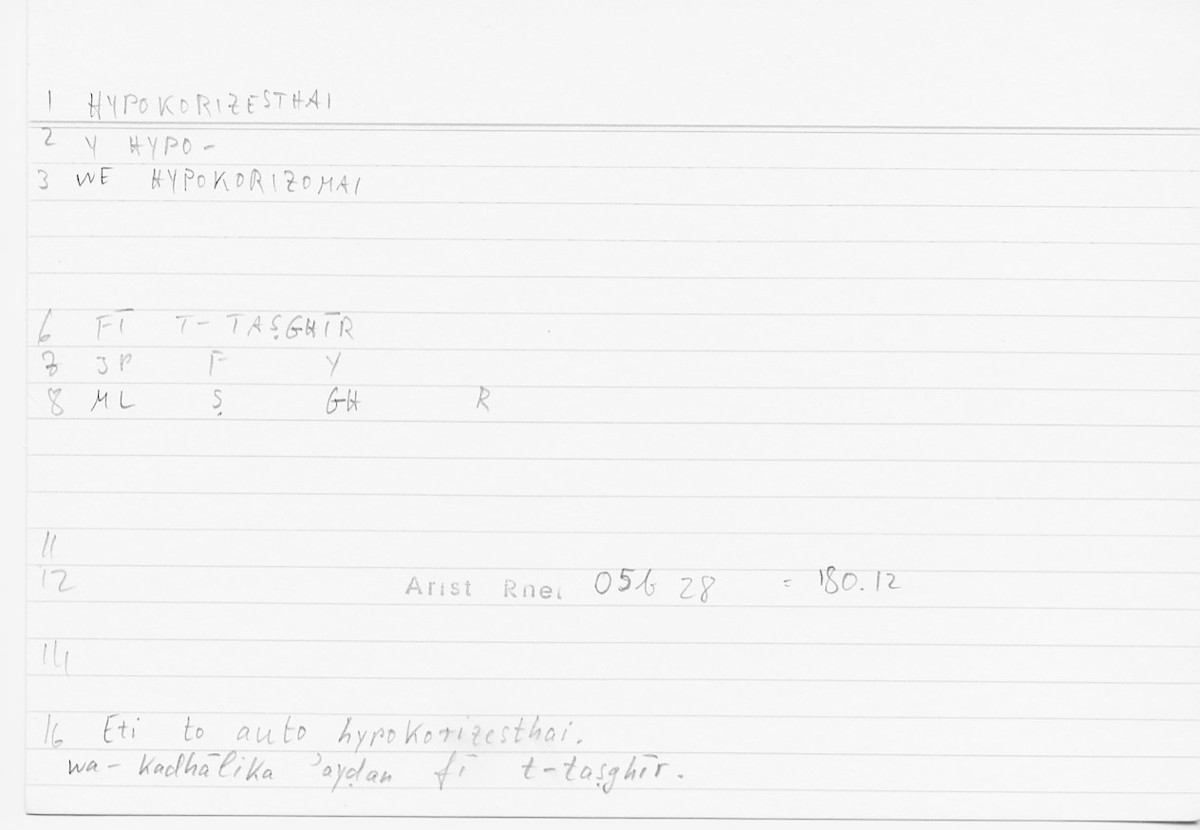 1 HYPOKORIZESTHAI
2 Y HYPO-
3 WE HYPOKORIZOMAI
6 FĪ T- TAṢGHĪR
7 JP F Y
8 ML Ṣ GH R
11
12 Arist Rhet 056 28 = 180.12
14
16 Eti to auto hypokorizesthai.
wa- kadhālika ʾayḍan fī t-taṣghīr.